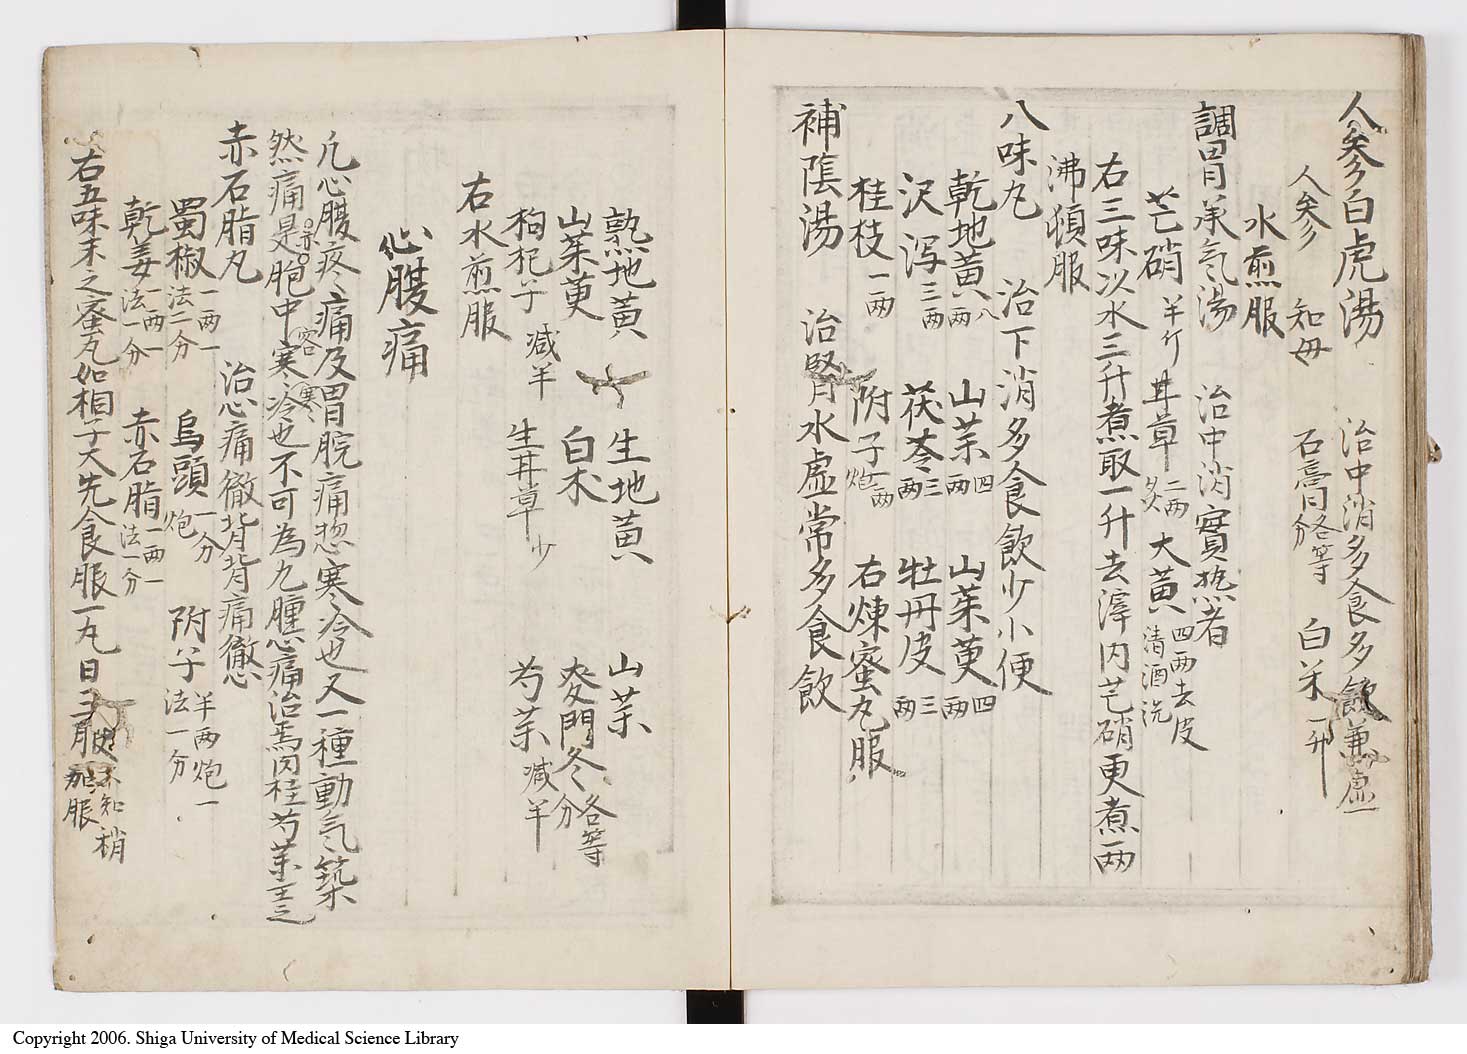 人參白虎湯　治中消多食多飲兼虛
人參　知母　石膏各等分　白米一升
水煎服
調胃承气湯　治中消實热者
芒硝半斤　甘草二两炙　大黃四两去皮清酒洗
右三味以水三升煮取一升去滓内芒硝更煮两
沸頓服
八味丸　治下消多食飲少小便
乾地黃八两　山茱四两　山茱萸四两
沢泻三两　茯苓三两　牡丹皮三两
桂枝一两　附子一两炮　右煉蜜丸服
補陰湯　治腎水虛常多食飲
熟地黃　生地黃　山茱
山茱萸　白朮　麥門冬各等分
枸杞子減半　生甘草少　芍茱減半
右水煎服
心腹痛
凡心腹疼痛及胃脘痛惣寒冷也又一種動气築
然痛是胞中寒冷也不可為丸腫心痛治焉肉桂芍茱主之
赤石脂丸　治心痛徹背背痛徹心
蜀椒一两一法二分　烏頭一分炮　附子半两炮一法一分
乾姜一两一法一分　赤石脂一两一法一分
右五味末之蜜丸如梧子大先食服一丸日三服不知稍加服
Copyright 2006. Shiga University of Medical Science Library